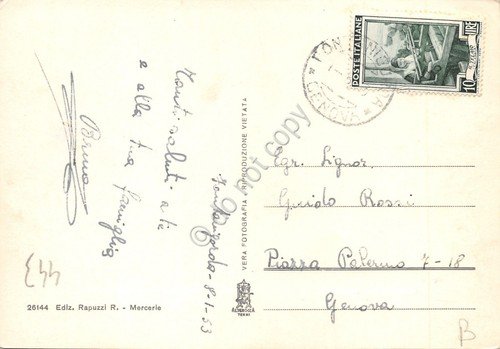 Tanti saluti a te
e alla tua famiglia
Bruno
Fontanigorda - 8-1-53
VERA FOTOGRAFIA - RIPRODUZIONE VIETATA
© not copy
POSTE ITALIANE
10 LIRE
GENOVA
Egr. Signor
Guido Rossi
Piazza Palermo 7-18
Genova
E44
26144 Ediz. Rapuzzi R. - Mercerie
ALTEROCCA
TERNI
B